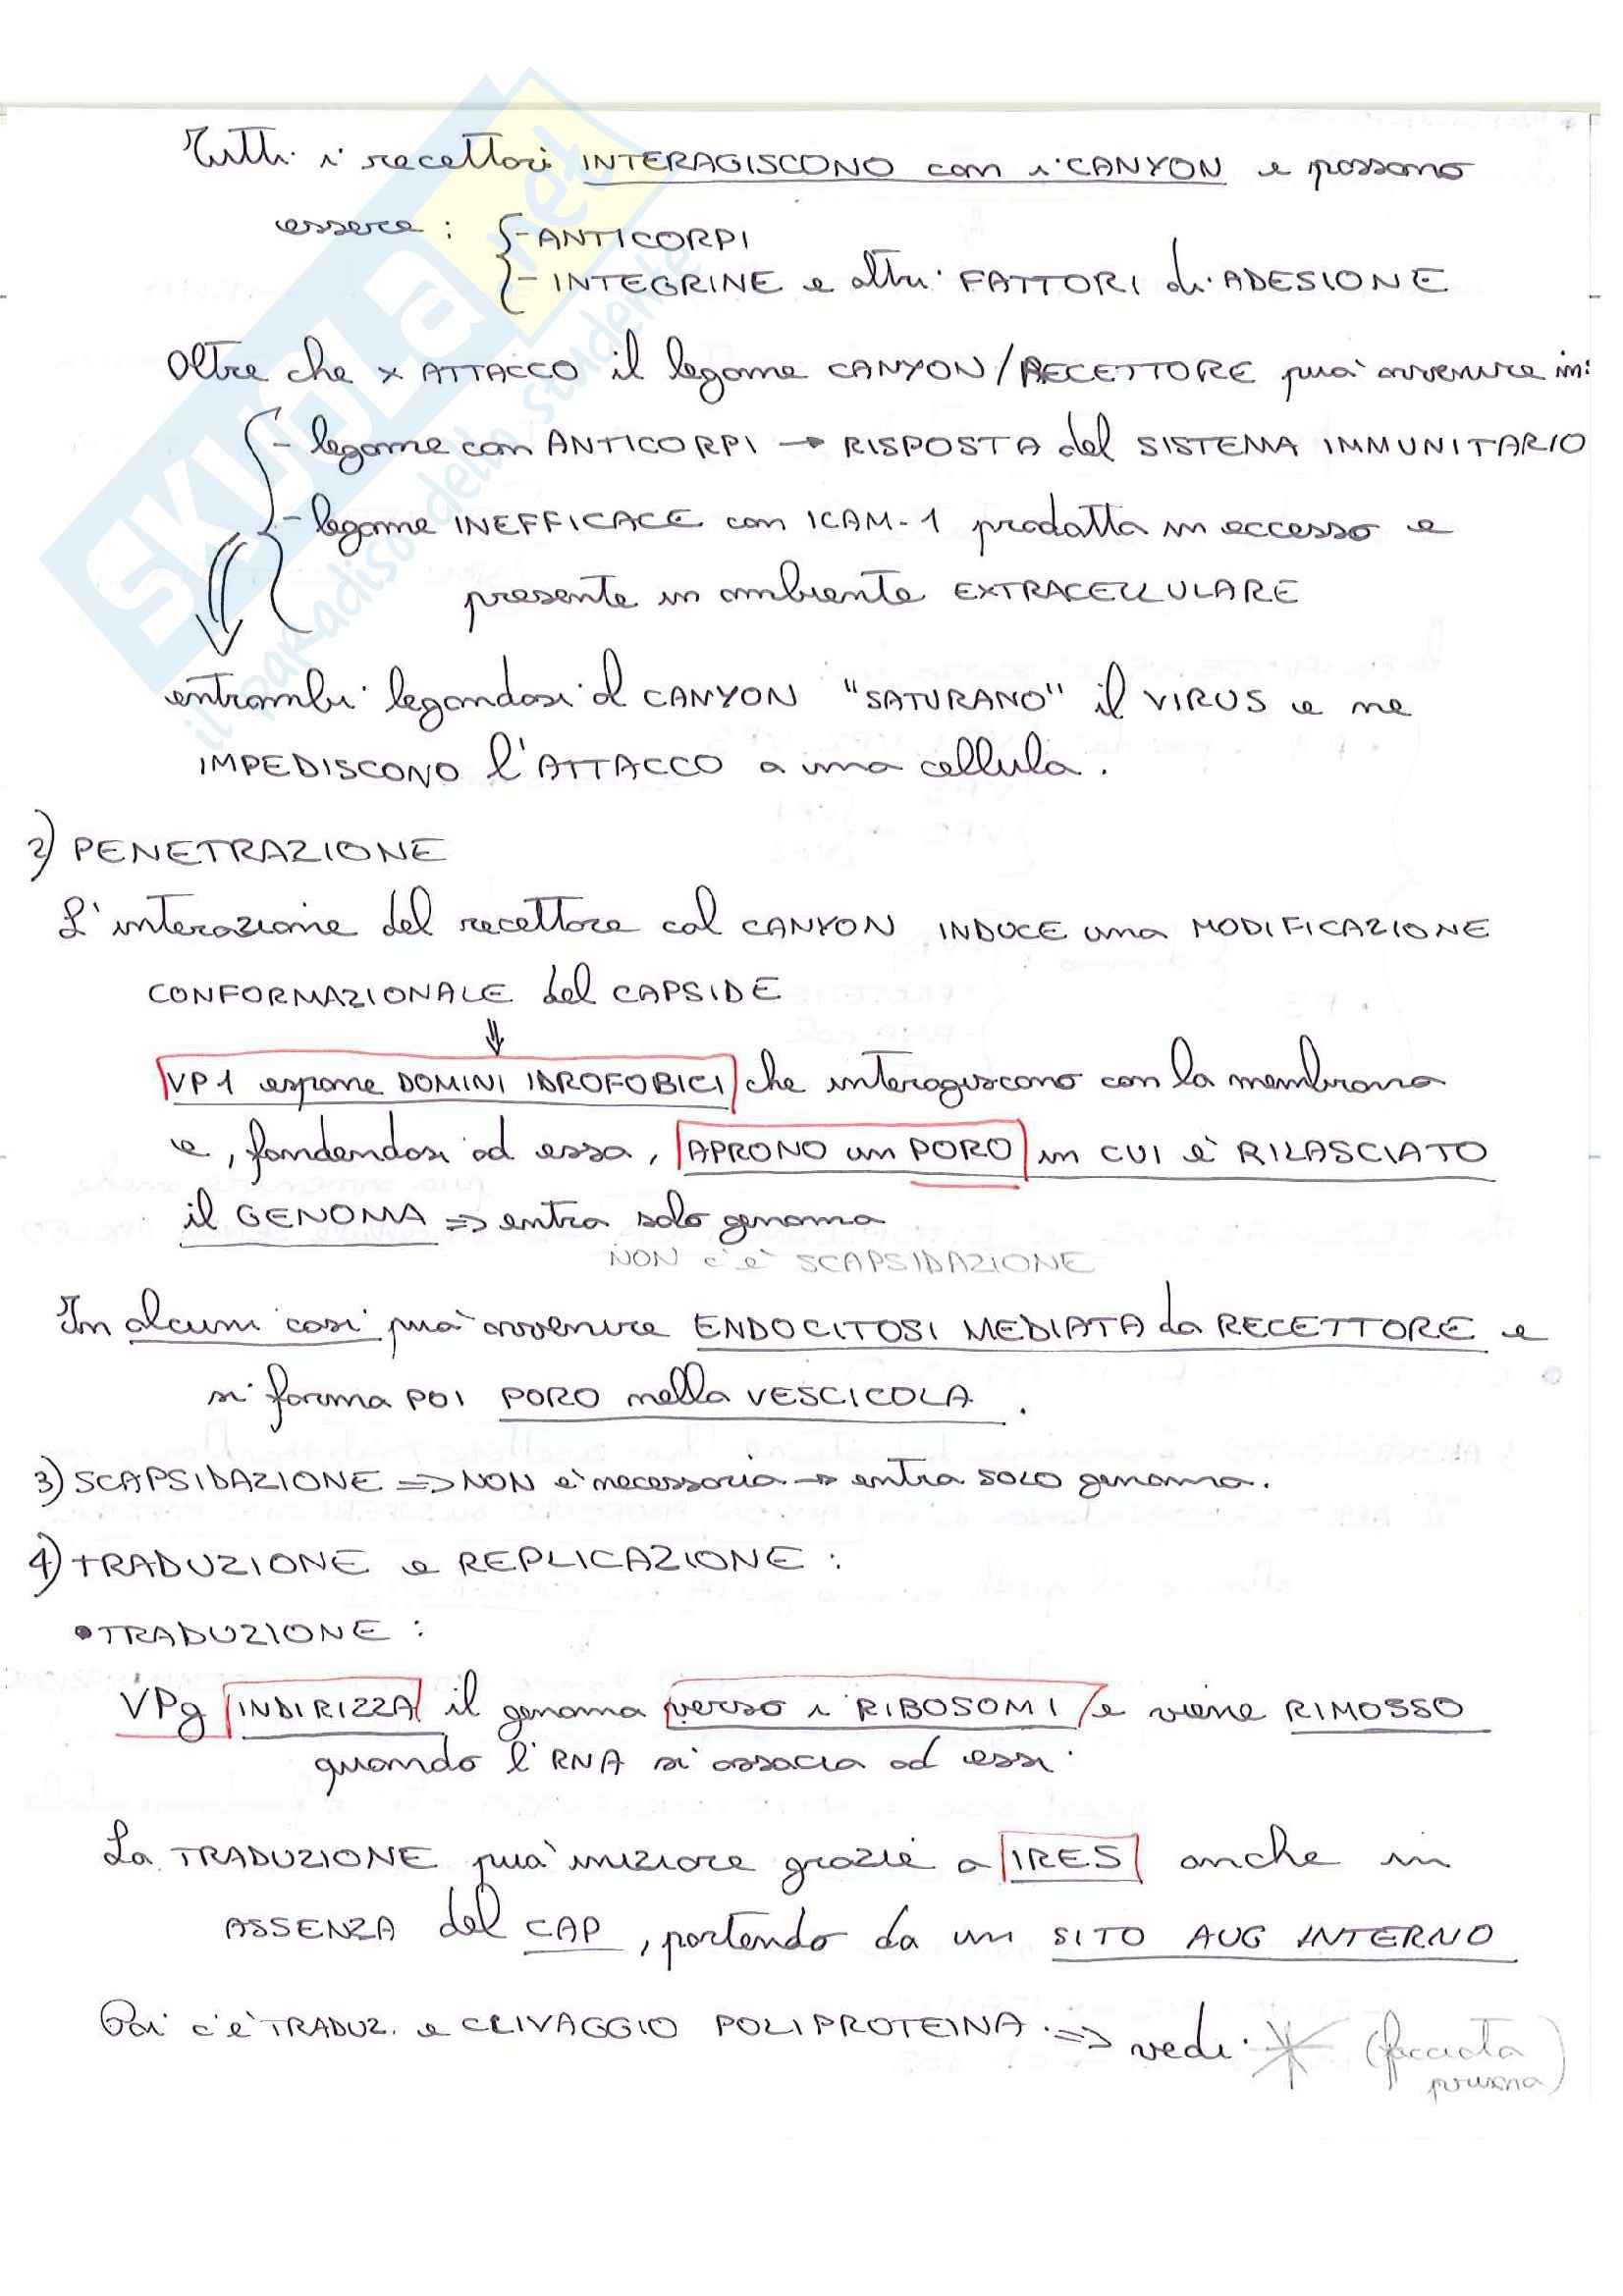 Tutti i recettori INTERAGISCONO con i CANYON e possono
essere : { - ANTICORPI
- INTEGRINE e altri FATTORI di ADESIONE
Oltre che x ATTACCO il legame CANYON/RECETTORE può avvenire in:
- legame con ANTICORPI → RISPOSTA del SISTEMA IMMUNITARIO
- legame INEFFICACE con ICAM-1 prodotta in eccesso e
presente in ambiente EXTRACELLULARE
entrambi legandosi al CANYON "SATURANO" il VIRUS e ne
IMPEDISCONO l'ATTACCO a una cellula.
2) PENETRAZIONE
L'interazione del recettore col CANYON INDUCE una MODIFICAZIONE
CONFORMAZIONALE del CAPSIDE
⇓
VP1 espone DOMINI IDROFOBICI che interagiscono con la membrana
e, fondendosi ad essa, APRONO un PORO in CUI è RILASCIATO
il GENOMA => entra solo genoma
NON c'è SCAPSIDAZIONE
In alcuni casi può avvenire ENDOCITOSI MEDIATA da RECETTORE e
si forma POI PORO nella VESCICOLA.
3) SCAPSIDAZIONE => NON è necessaria → entra SOLO genoma.
4) TRADUZIONE e REPLICAZIONE :
• TRADUZIONE :
VPg INDIRIZZA il genoma verso i RIBOSOMI e viene RIMOSSO
quando l'RNA si associa ad essi.
La TRADUZIONE può iniziare grazie a IRES anche in
ASSENZA del CAP, partendo da un SITO AUG INTERNO
Poi c'è TRADUZ. e CLIVAGGIO POLIPROTEINA => vedi * (facciata
prima)
SKUOLA.net
il paradiso dello studente